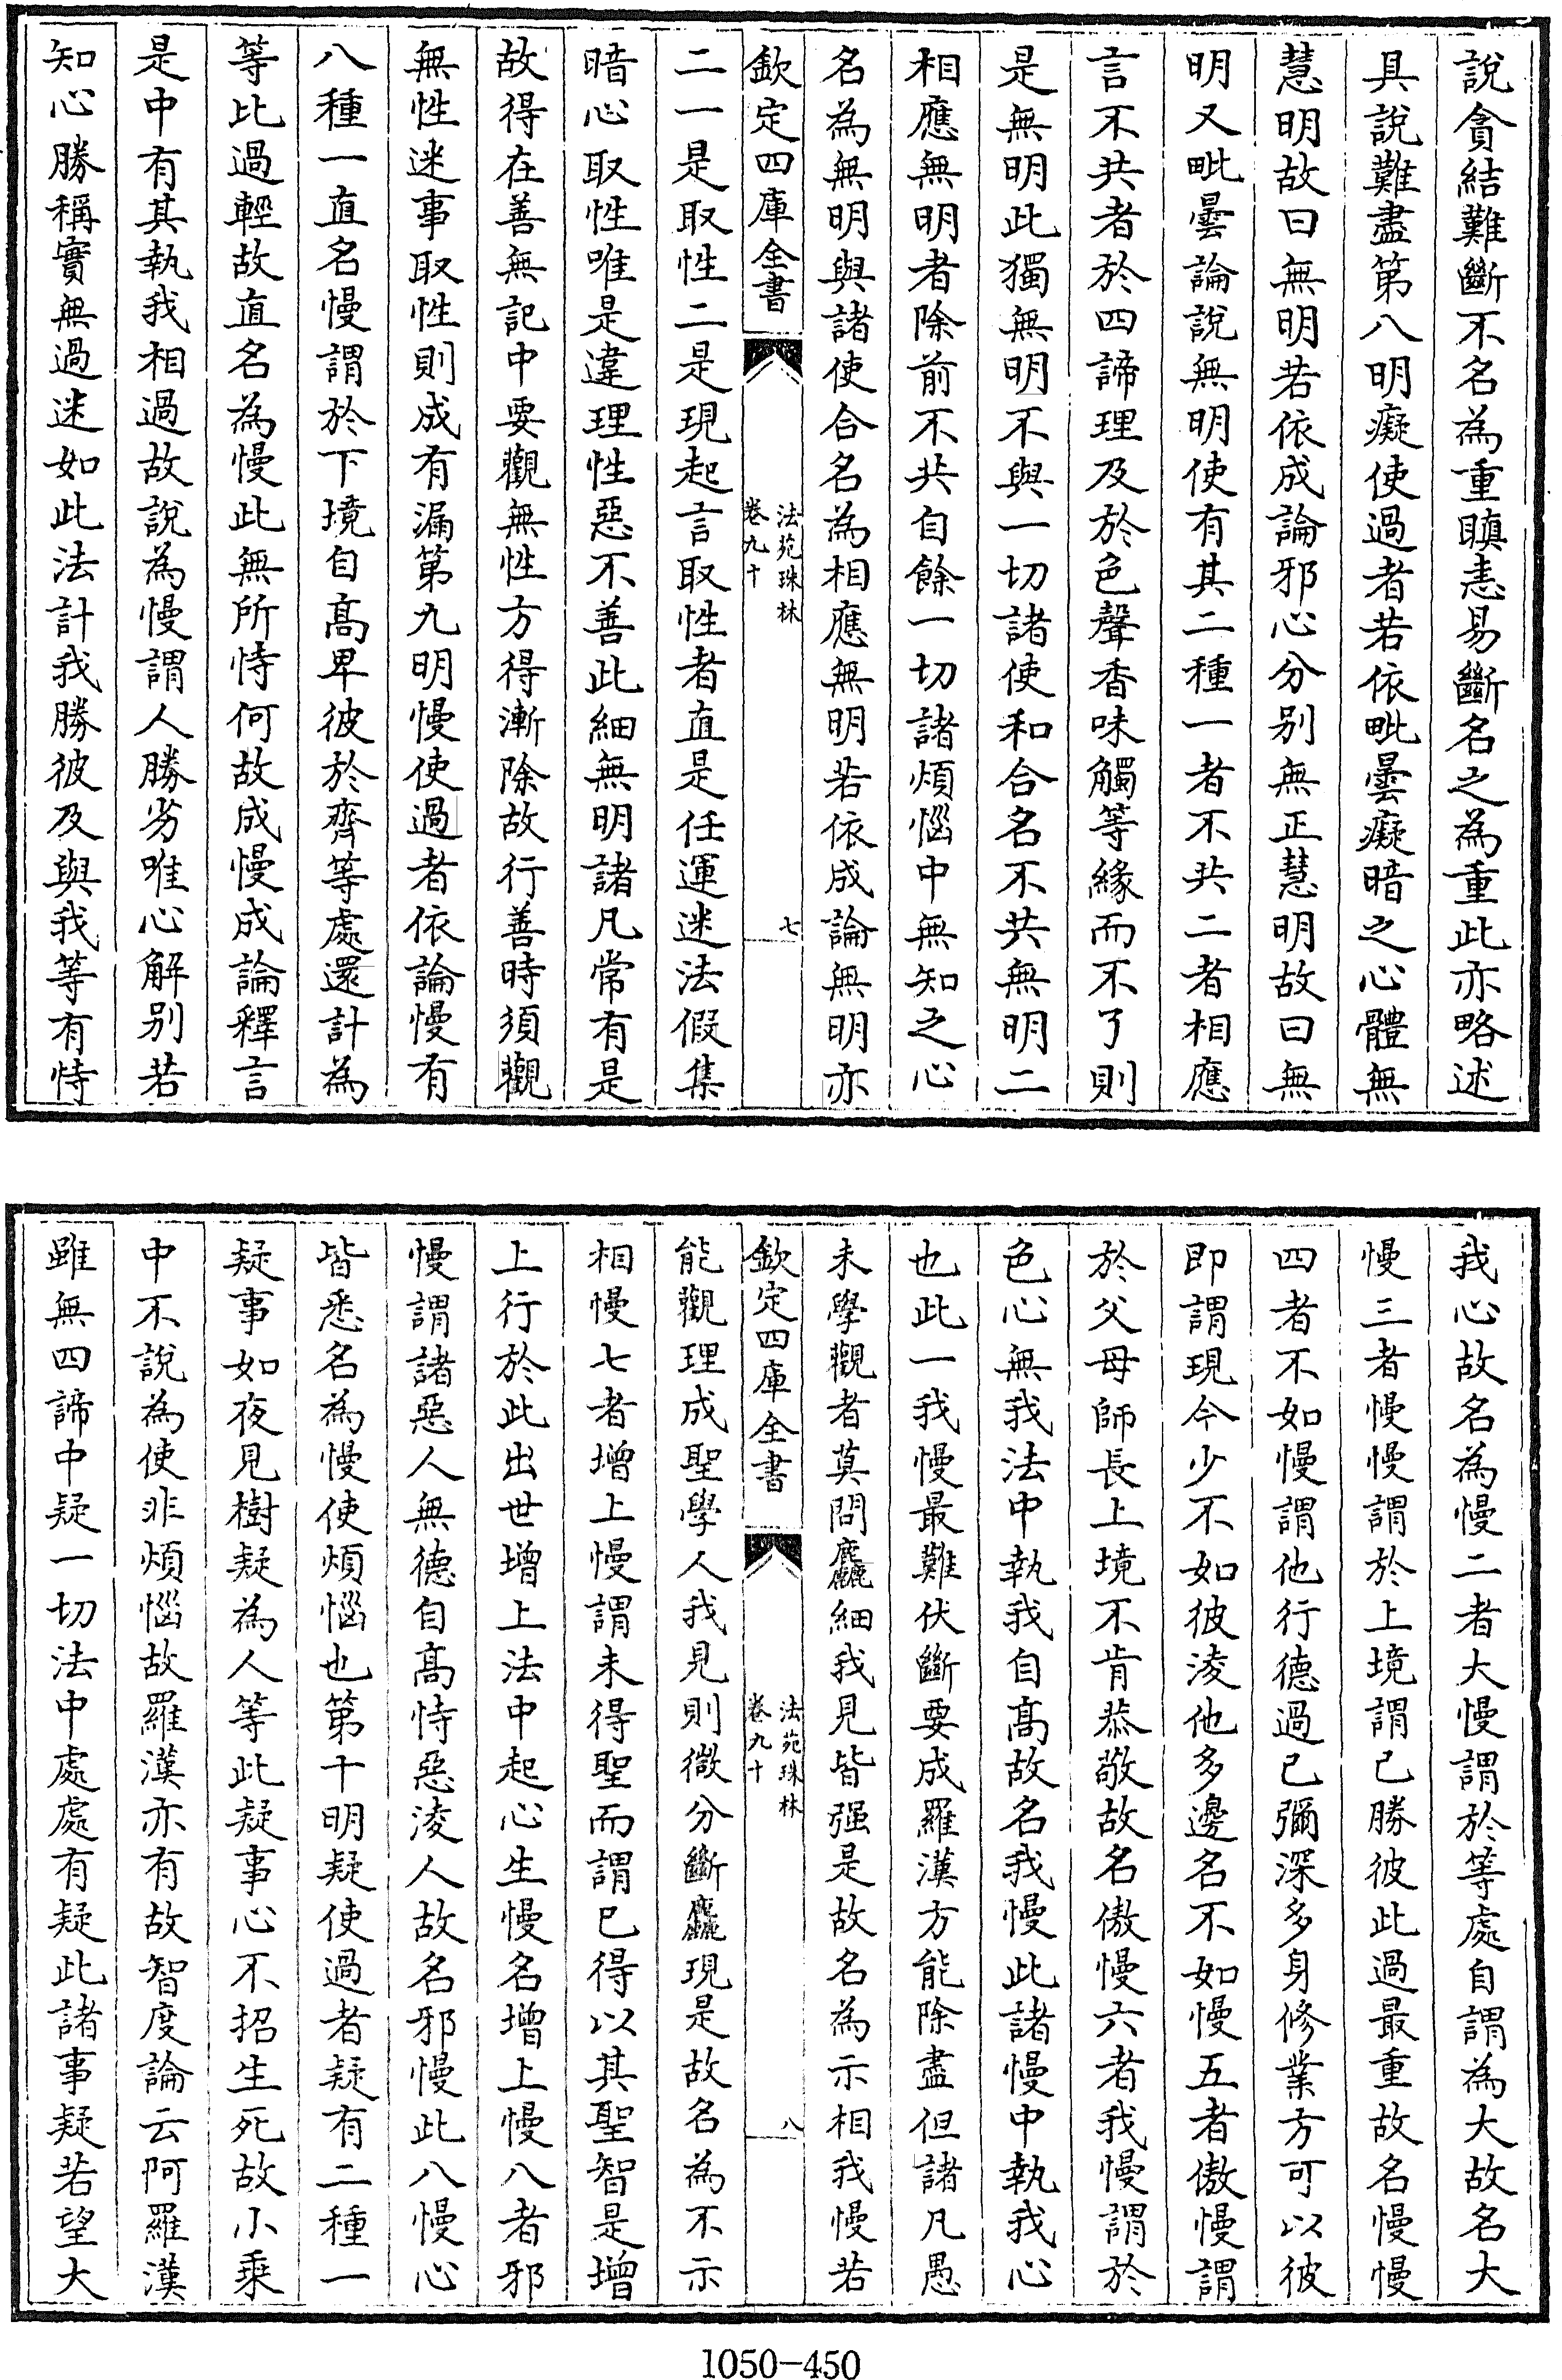 說貪結難斷不名為重瞋恚易斷名之為重此亦略述
具說難盡第八明癡使過者若依毗曇癡暗之心體無
慧明故曰無明若依成論邪心分別無正慧明故曰無
明又毗曇論說無明明使有其二種一者不共二者相應
言不共者於四諦理及於色聲香味觸等緣而不了則
是無明此獨無明不與一切諸使和合名不共無明二
相應無明者除前不共自餘一切諸煩惱中無知之心
名為無明與諸使合名為相應無明若依成論無明亦
欽定四庫全書
法苑珠林
卷九十
七
二一是取性二是現起言取性者直是任運迷法假集
暗心取性唯是違理性惡不善此細無明諸凡常有是
故得在善無記中要觀無性方得漸除故行善時須觀
無性迷事取性則成有漏第九明慢使過者依論慢有
八種一直名慢謂於下境自高卑彼於齊等處還計為
等比過輕故直名為慢此無所恃何故成慢成論釋言
是中有其執我相過故說為慢謂人勝劣唯心解別若
知心勝稱實無過迷如此法計我勝彼及與我等有恃
我心故名為慢二者大慢謂於等處自謂為大故名大
慢三者慢慢謂於上境謂已勝彼此過最重故名慢慢
四者不如慢謂他行德過已彌深多身修業方可以彼
即謂現今少不如彼淩他多邊名不如慢五者傲慢謂
於父母師長上境不肯恭敬故名傲慢六者我慢謂於
色心無我法中執我自高故名我慢此諸慢中執我心
也此一我慢最難伏斷要成羅漢方能除盡但諸凡愚
未學觀者莫問麤細我見皆强是故名為示相我慢若
欽定四庫全書
法苑珠林
卷九十
八
能觀理成聖學人我見則微分斷麤現是故名為不示
相慢七者增上慢謂未得聖而謂已得以其聖智是增
上行於此出世增上法中起心生慢名增上慢八者邪
慢謂諸惡人無德自高恃惡淩人故名邪慢此八慢心
皆悉名為慢使煩惱也第十明疑使過者疑有二種一
疑事如夜見樹疑為人等此疑事心不招生死故小乘
中不說為使非煩惱故羅漢亦有故智度論云阿羅漢
雖無四諦中疑一切法中處處有疑此諸事疑若望大
1050-450